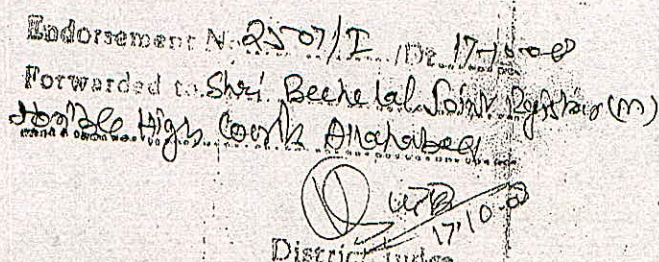 Endorsement N. 2507/I /Dt. 17-10-08
Forwarded to. Shri Beche Lal Joint Registrar (M)
Hon'ble High Court Allahabad
17.10.08
District Judge